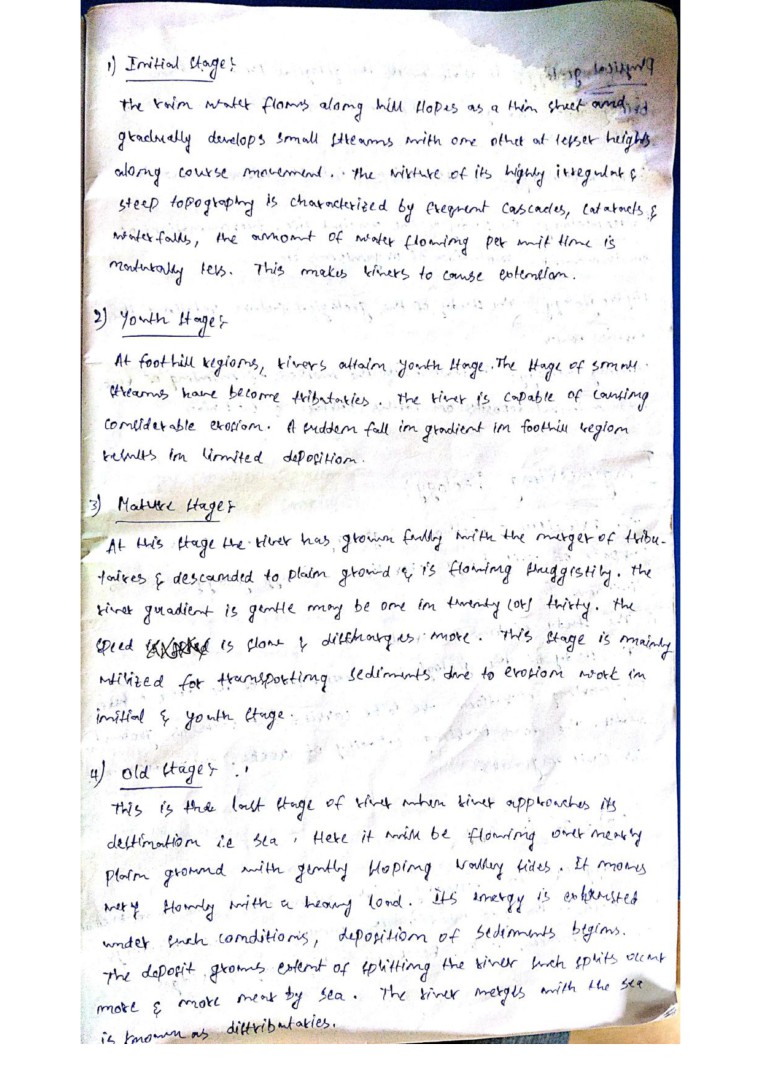 1) Initial Stage:
The rain water flows along hill slopes as a thin sheet and
gradually develops small streams with one other at lesser heights
along course movement. The mixture of its highly irregular &
steep topography is characterized by frequent cascades, cataracts &
waterfalls, the amount of water flowing per unit time is
naturally less. This makes rivers to cause extension.
2) Youth Stage:
At foothill regions, rivers attain youth stage. The stage of small
streams have become tributaries. The river is capable of causing
considerable erosion. A sudden fall in gradient in foothill region
results in limited deposition.
3) Mature Stage:
At this stage the river has grown fully with the merger of tribu-
taires & descanded to plain ground & is flowing sluggistily. The
river guradient is gentle may be one in twenty (or) thirty. The
speed is slow & discharg is more. This stage is mainly
utilized for transporting sediments due to erosion work in
initial & youth stage.
4) Old Stage:
This is the last stage of river when river approaches its
destination i.e sea. Here it will be flowing over nearly
plain ground with gently sloping valley sides. It moves
very slowly with a heavy load. Its energy is exhausted
under such conditions, deposition of sediments begins.
The deposit grows extent of splitting the river such splits occur
more & more near by sea. The river merges with the sea
is known as distributaries.